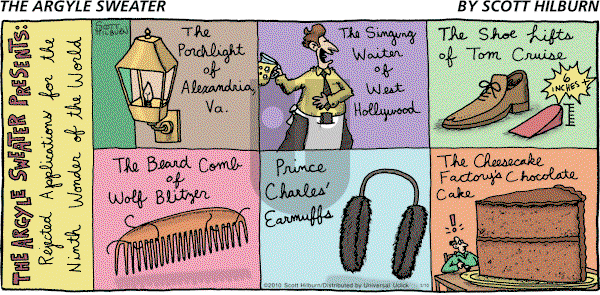 THE ARGYLE SWEATER
BY SCOTT HILBURN
THE ARGYLE SWEATER PRESENTS:
Rejected Applications for the
Ninth Wonder of the World
SCOTT
HILBURN
The
Porchlight
of
Alexandria,
Va.
The Singing
Waiter
of
West
Hollywood
The Shoe Lifts
of Tom Cruise
6
INCHES
The Beard Comb
of
Wolf Blitzer
Prince
Charles'
Earmuffs
©2010 Scott Hilburn/Distributed by Universal Uclick
The Cheesecake
Factory's Chocolate
Cake
!